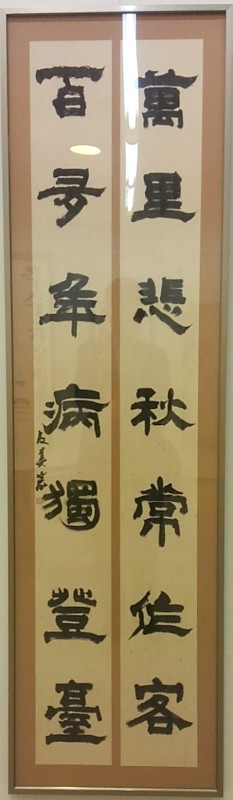 萬里悲秋常作客
百多年病獨登臺